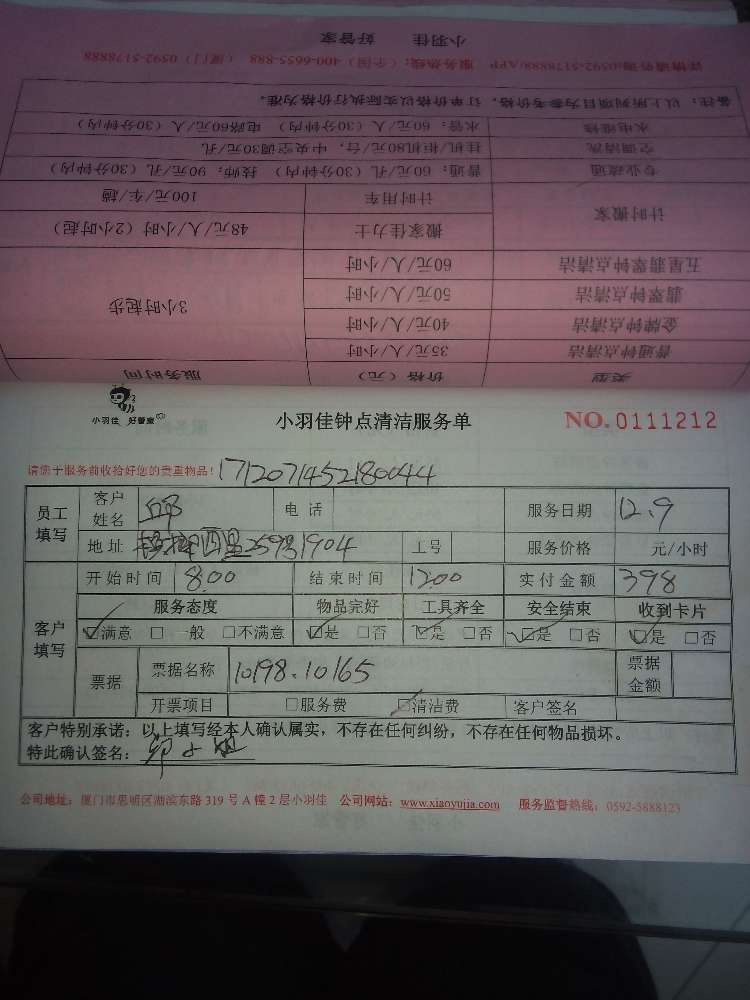 小羽佳 好管家
详情请咨询:0592-5178888/APP 服务热线:(全国)400-6655-888 (厦门)0592-5178888
备注:以上所列项目为参考价格,订单价格以实际执行价格为准。
水电维修 水管:60元/人(30分钟内) 电路60元/人(30分钟内)
空调清洗 挂机/柜机80元/台,中央空调30元/孔
专业疏通 普通:60元/孔(30分钟内) 技师:90元/孔(30分钟内)
计时搬家 计时用车 100元/车/趟
搬家佳力士 48元/人/小时(2小时起)
五星翡翠钟点清洁 60元/人/小时 3小时起步
翡翠钟点清洁 50元/人/小时
金牌钟点清洁 40元/人/小时
普通钟点清洁 35元/人/小时
类型 价格(元) 服务时间
小羽佳 好管家
小羽佳钟点清洁服务单 NO.0111212
请您于服务前收拾好您的贵重物品! 1712071452180044
员工填写 客户姓名 电话 服务日期 12.9
地址 四里259号1904 工号 服务价格 元/小时
客户填写 开始时间 8.00 结束时间 12.00 实付金额 398
服务态度 物品完好 工具齐全 安全结束 收到卡片
☑满意 □一般 □不满意 ☑是 □否 ☑是 □否 ☑是 □否 ☑是 □否
票据 票据名称 10198.10165 票据金额
开票项目 □服务费 ☑清洁费 客户签名
客户特别承诺:以上填写经本人确认属实,不存在任何纠纷,不存在任何物品损坏。
特此确认签名:
公司地址:厦门市思明区湖滨东路319号A幢2层小羽佳 公司网站:www.xiaoyujia.com 服务监督热线:0592-5888123